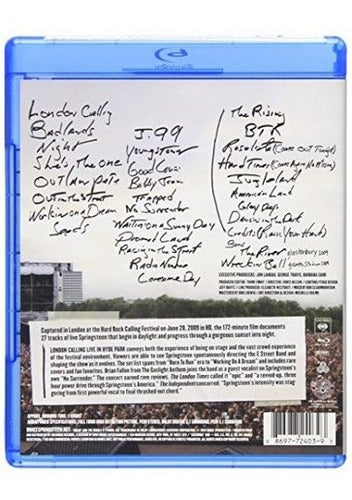 London Calling
Badlands
Night
She's The One
Outlaw Pete
Out in the Street
Workin on a Dream
Seeds
J. 99
Youngstown
Good Lovin
Bobby Jean
Trapped
No Surrender
Waiting on a Sunny Day
Promised Land
Racing in the Street
Radio Nowhere
Lonesome Day
The Rising
BTR
Rosalita (Come Out Tonight)
Hard Times (Come Again No More)
Jungleland
American Land
Glory Days
Dancin in the Dark
Credits (Raise Your Hand)
The River Glastonbury 2009
Wreckin Ball Giants Stadium 2009
EXECUTIVE PRODUCERS: JON LANDAU, GEORGE TRAVIS, BARBARA CARR
Captured in London at the Hard Rock Calling Festival on June 28, 2009 in HD, the 172-minute film documents
27 tracks of live Springsteen that begin in daylight and progress through a gorgeous sunset into night.
LONDON CALLING: LIVE IN HYDE PARK conveys both the experience of being on stage and the vast crowd experience
of the festival environment. Viewers are able to see Springsteen spontaneously directing the E Street Band and shaping
the show as it evolves. The set list spans from "Born To Run" era to "Working On A Dream" and includes rare
covers and fan favorites. Brian Fallon from The Gaslight Anthem joins the band as a guest vocalist on Springsteen's
own "No Surrender." The concert was reviewed. The London Times called it "epic" and "a revved-up, three
hour power drive through Springsteen's America." The Independent concurred: "Springsteen's intensity was stag-
gering from first powerful vocal to final crashing chord."
8 8697-72403-9 5